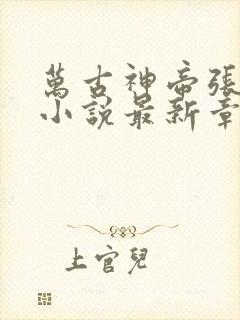 萬古神帝張
小說最新章
上官兒